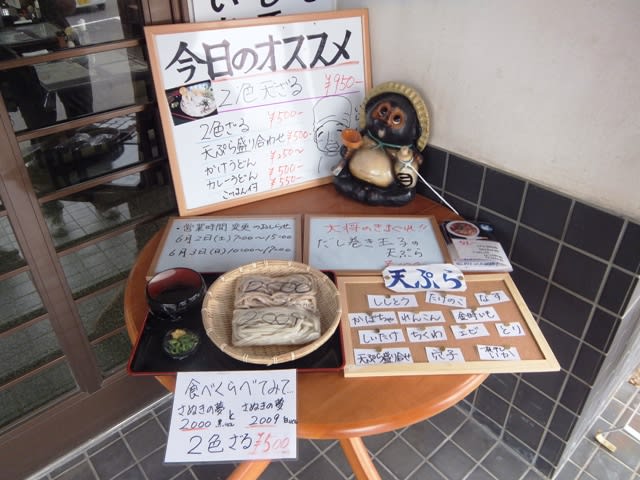 今日のオススメ
2色天ざる ¥950-
2色ざる ¥500-
天ぷら盛り合わせ ¥500-
かけうどん ¥250~
カレーうどん ¥500-
ごはん付 ¥550-
・営業時間変更のお知らせ
6月2日(土) 9:00～15:00
6月3日(日) 10:00～
大将のきまぐれ!!
だし巻き玉子の
天ぷら
天ぷら
ししとう たけのこ なす
かぼちゃ れんこん 金時いも
しいたけ ちくわ エビ とり
天ぷら盛り合せ 穴子
2000 2009
食べくらべてみて...
さぬきの夢 と さぬきの夢
2000 2009
2色ざる ¥500